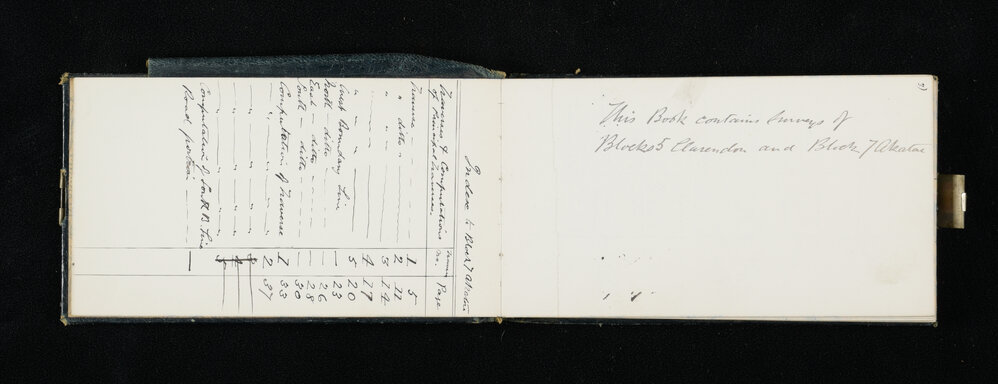 Index to Block 7 Akatore
Traverses & Computations of Principal Traverses. Traverse No. Page
Traverse — — — 1 5
" ditto " — — — 2 11
" " — — — 3 14
" " — — — 4 17
" " — — — 5 20
West Boundary Line — 23
North — ditto — — — 26
East — ditto — — — 28
South — ditto — — — 30
Computation of Traverse 1 33
" " " 2 37
" " "
" " "
Computation of South B. Line
Road portion — —
This Book contains Surveys of
Blocks 5 Clarendon and Block 7 Akatore